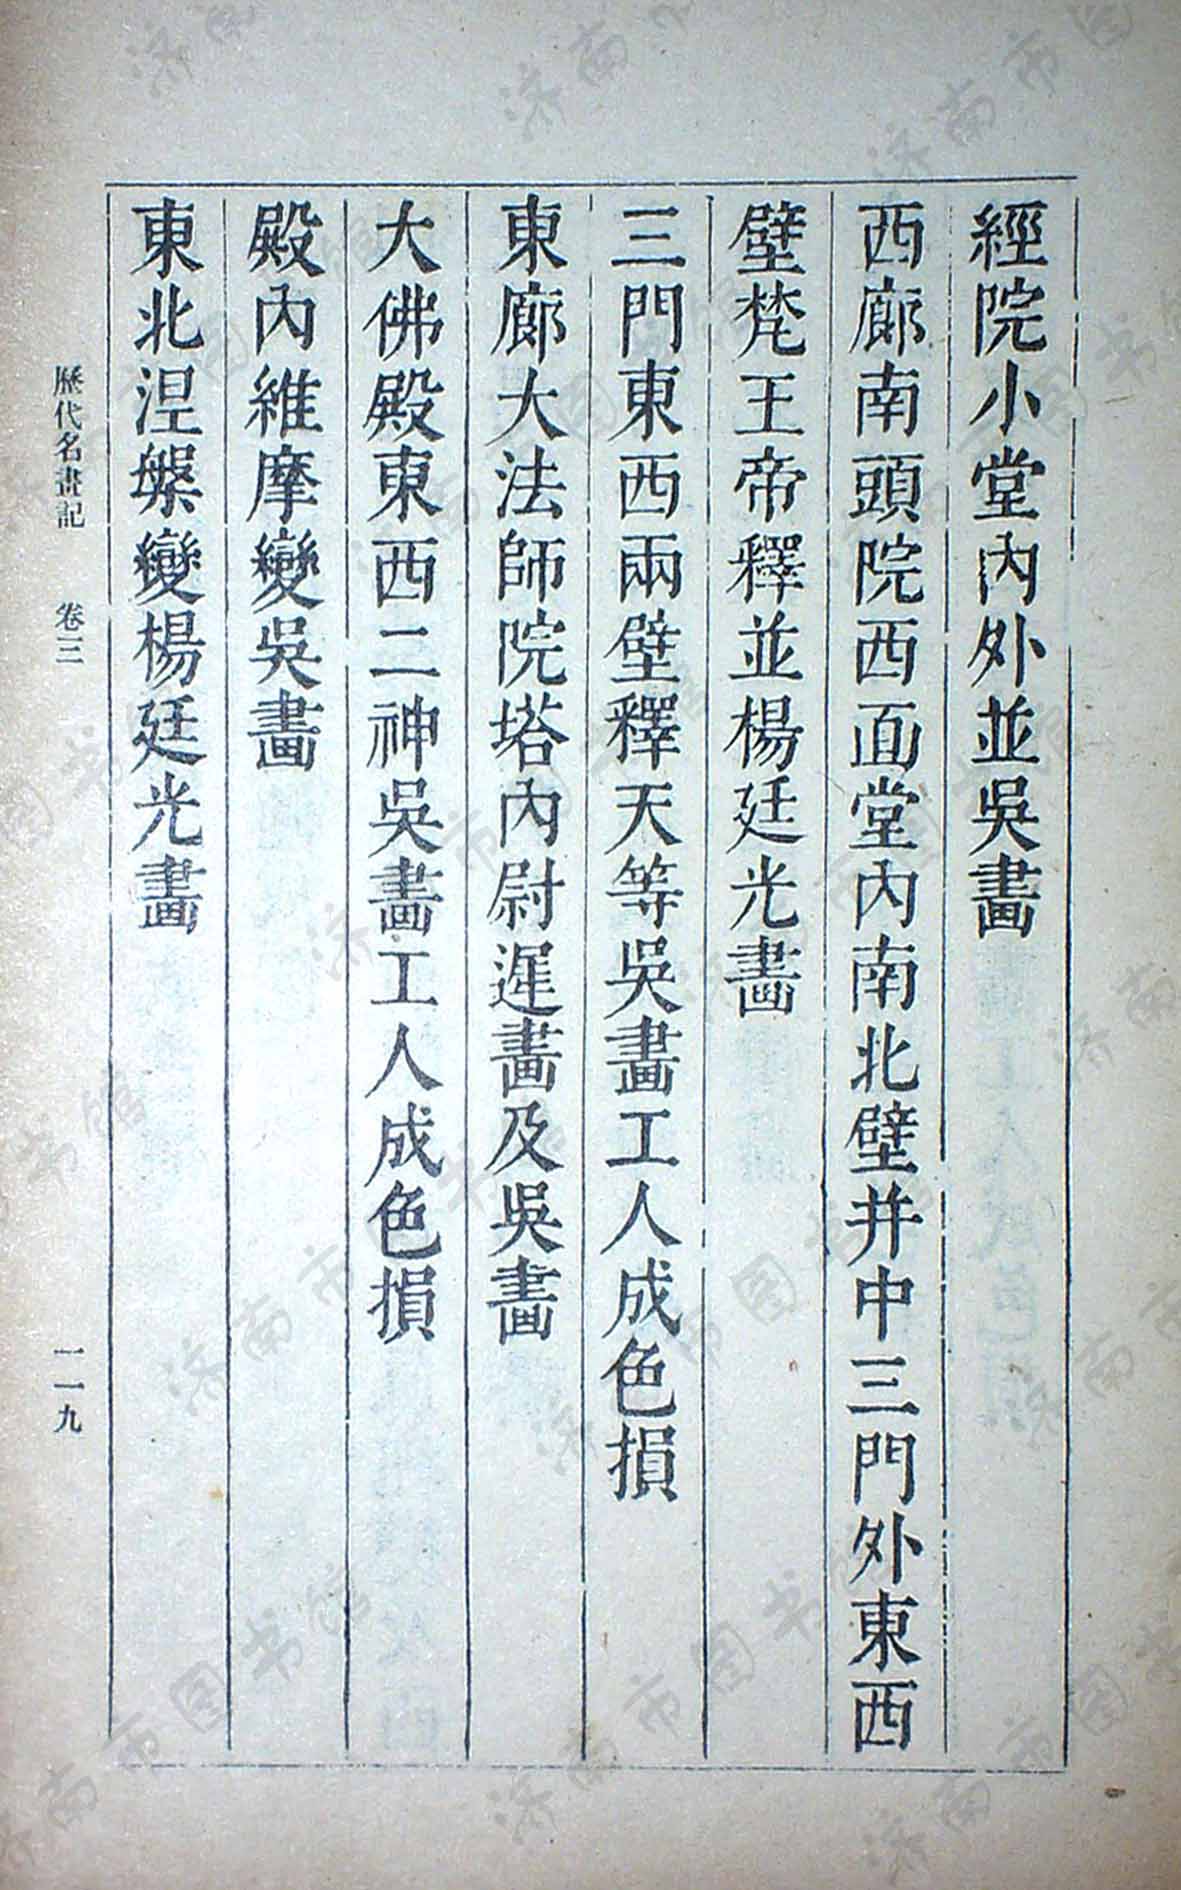 經院小堂內外並吳畫
西廊南頭院西面堂內南北壁并中三門外東西
壁梵王帝釋並楊廷光畫
三門東西兩壁釋天等吳畫工人成色損
東廊大法師院塔內尉遲畫及吳畫
大佛殿東西二神吳畫工人成色損
殿內維摩變吳畫
東北涅槃變楊廷光畫
歷代名畫記 卷三 一一九
济南市图书馆